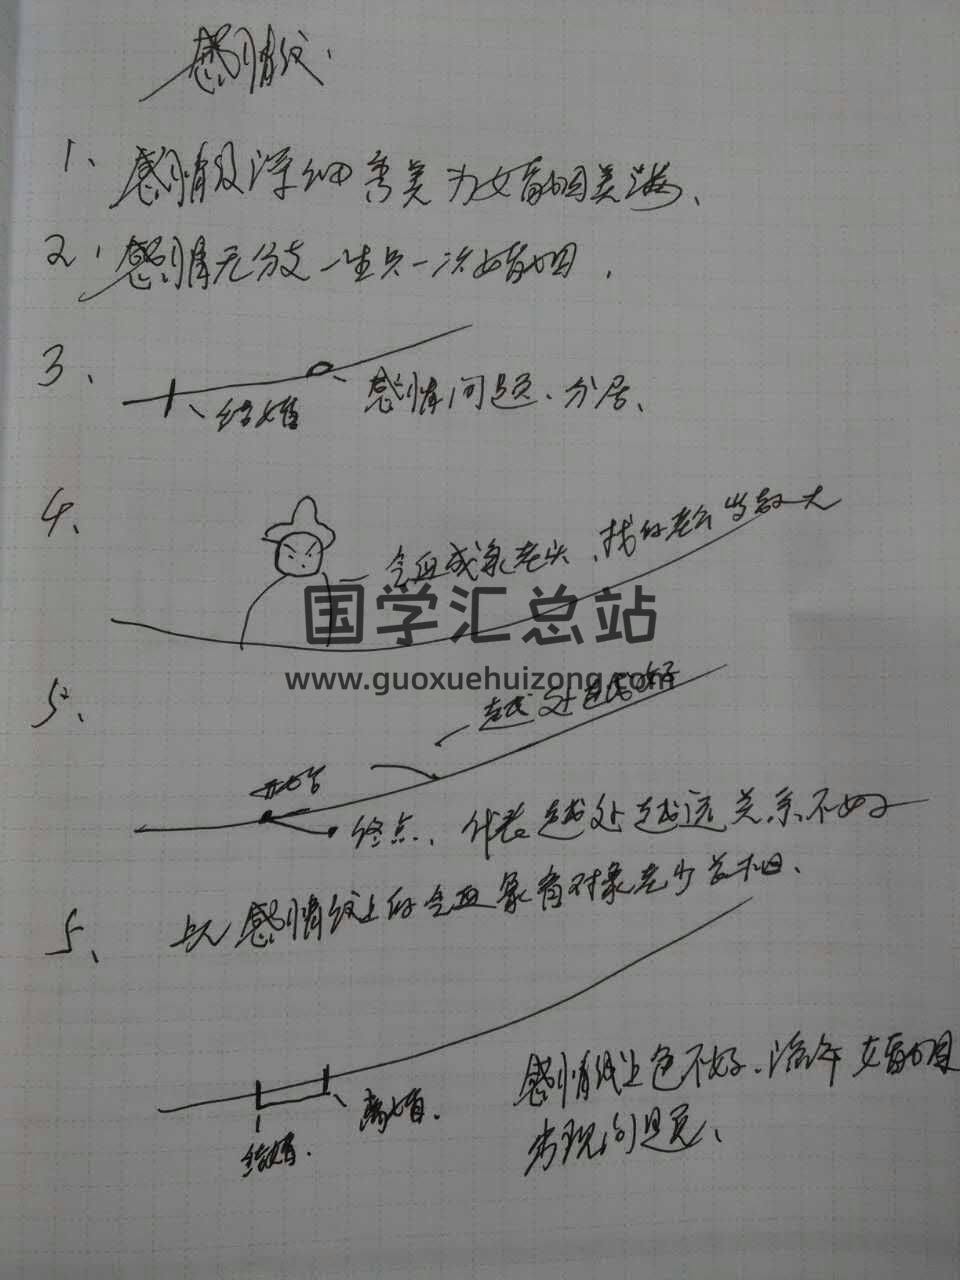 感情纹、
1、感情纹深细秀美为女婚姻美满、
2、感情无分支一生只一次婚姻.
3、
结婚 感情问题、分居、
4、
气血成象老头、找的老公岁数大
国学汇总站
www.guoxuehuizong.com
5、
越处越好
结婚
终点、代表越处越远关系不好
5、以感情纹上的气血象看对象老少长相、
感情线上色不好、流年婚姻
离婚.
出现问题、
结婚.